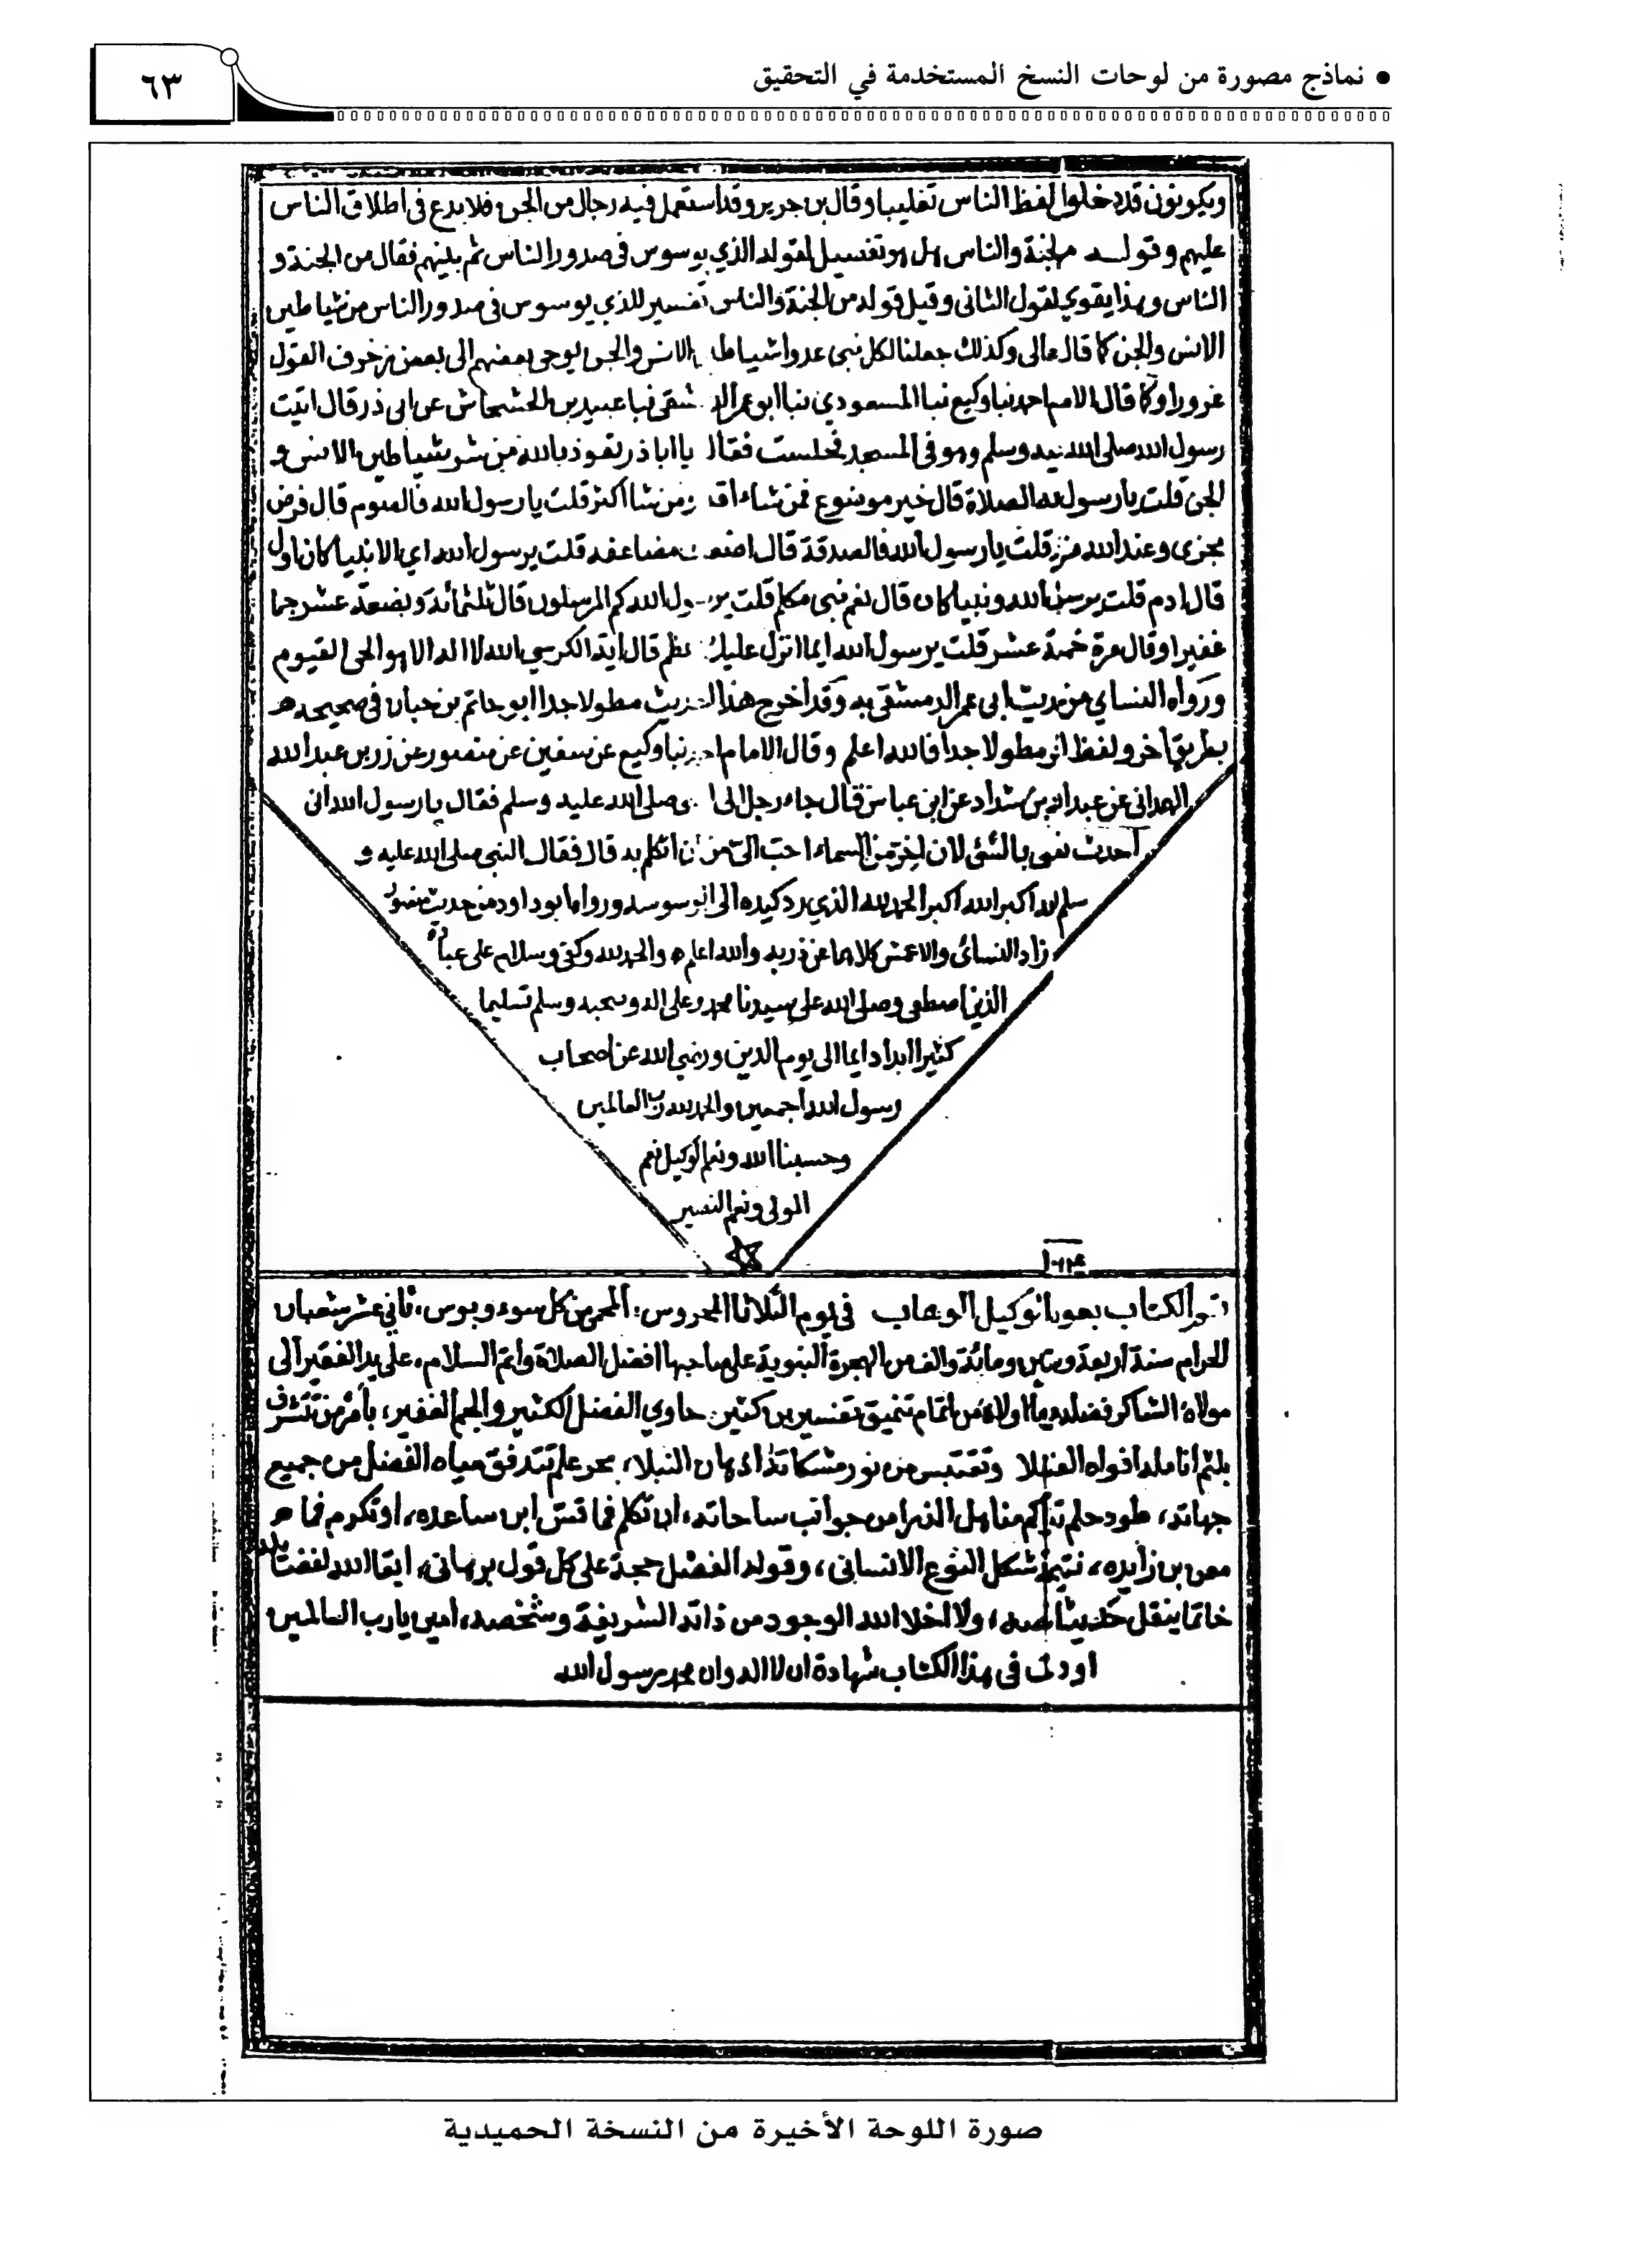 • نماذج مصورة من لوحات النسخ المستخدمة في التحقيق
٦٣
ويكونون قد دخلوا لفظ الناس تغليبا وقال بن جرير وقد استعمل فيه رجال من الجن فلا بدع في اطلاق الناس
عليهم وقوله من الجنة والناس هل هو تفصيل لقوله الذي يوسوس في صدور الناس ثم بينهم فقال من الجنة و
الناس وهذا يقوي لقول الثاني وقيل قوله من الجنة والناس تفسير للذي يوسوس في صدور الناس من شياطين
الانس والجن كما قال تعالى وكذلك جعلنا لكل نبي عدوا شياط الانس والجن يوحى بعضهم الى بعض زخرف القول
غرورا وكما قال الامام احمد نبا وكيع نبا المسعودي نبا ابو عمر الد مشقي نبا عبيد بن الخشخاش عن ابي ذر قال اتيت
رسول الله صلى الله عليه وسلم وهو في المسجد فجلست فقال يا اباذر تعوذ بالله من شر شياطين الانس و
الجن قلت يا رسول الله الصلاة قال خير موضوع فمن شاء اق ومن شا اكثر قلت يا رسول الله فالصوم قال فرض
مجزى وعند الله مزيد قلت يا رسول الله فالصدقة قال اضعف مضاعفه قلت يرسول الله اي الانبيا كان اول
قال ادم قلت يرسول الله ونبيا كان قال نعم نبي مكلم قلت يرسول الله كم المرسلون قال ثلثمائة وبضعة عشر جما
غفيرا وقال مرة خمسة عشر قلت يرسول الله ايما انزل عليك عظم قال اية الكرسي الله لا اله الا هو الحي القيوم
ورواه النسائي من حديث ابي عمر الدمشقي به وقد اخرج هذا الحديث مطولا جدا ابو حاتم بن حبان في صحيحه
بطريق اخر ولفظ اخر مطولا جدا فالله اعلم وقال الامام احمد نبا وكيع عن سفين عن منصور عن زر بن عبد الله
الهمداني عن عبد الله بن شداد عن ابن عباس قال جاء رجل الى النبي صلى الله عليه وسلم فقال يا رسول الله اني
احدث نفسي بالشئ لان اخر من السماء احب الي من ان اتكلم به قال فقال النبي صلى الله عليه و
سلم الله اكبر الله اكبر الحمد لله الذي رد كيده الى الوسوسه ورواه ابو داود من حديث منصور
زاد النسائي والاعمش كلاهما عن ذر به والله اعلم ه والحمد لله وكفى وسلام على عباده
الذين اصطفى وصلى الله على سيدنا محمد وعلى اله وصحبه وسلم تسليما
كثيرا ابدا دايما الى يوم الدين ورضي الله عن اصحاب
رسول الله اجمعين والحمد لله رب العالمين
وحسبنا الله ونعم الوكيل نعم
المولى ونعم النصير
تم الكتاب بعون الوكيل الوهاب في يوم الثلاثا المحروس، المحمي من كل سوء وبوس، ثاني عشر شعبان
الحرام سنة اربعة وستين ومائة والف من الهجرة النبوية على صاحبها افضل الصلاة واتم السلام، على يد الفقير الى
مولاه الشاكر فضله وما اولاه من اتمام تنميق تفسير بن كثير حاوي الفضل الكثير والجم الغفير، بامر من تتشرف
بلثم انامله افواه الفضلا وتقتبس من نور مشكاته اذهان النبلا، بحر علم تتدفق مياه الفضل من جميع
جهاته، طود حلم تراكم مناهل من جوانب ساحاته، ان تكلم فما قس ابن ساعده، او تكرم فما
معن بن زايده، نتيجة شكل النوع الانساني، وقوله الفضل حجة على كل قول برهاني، ابقا الله لفضت يده
خاتما ينقل حديثا صه، ولا اخلا الله الوجود من ذاته الشريفة وشخصه، امين يا رب العالمين
اودعت في هذا الكتاب شهادة ان لا اله وان محمد رسول الله
صورة اللوحة الأخيرة من النسخة الحميدية